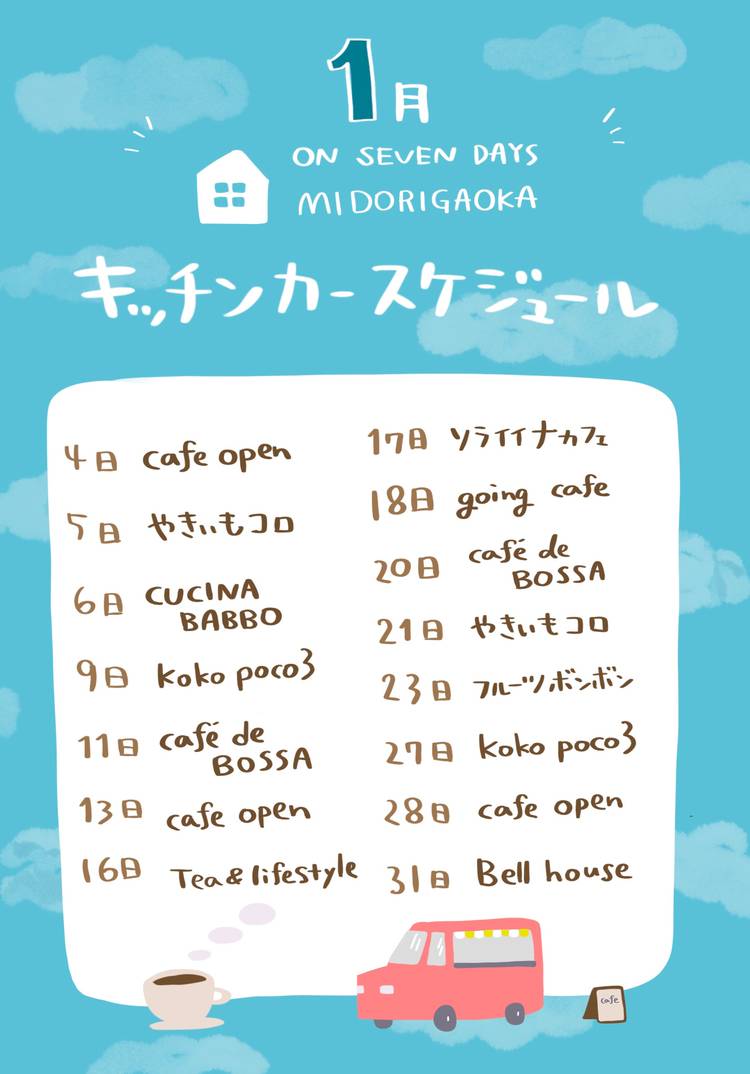 1月
ON SEVEN DAYS
MIDORIGAOKA
キッチンカースケジュール
4日 cafe open
5日 やきいもコロ
6日 CUCINA
BABBO
9日 koko poco3
11日 café de
BOSSA
13日 cafe open
16日 Tea&lifestyle
17日 ソライイナカフェ
18日 going cafe
20日 café de
BOSSA
21日 やきいもコロ
23日 フルーツボンボン
27日 koko poco3
28日 cafe open
31日 Bell house
cafe